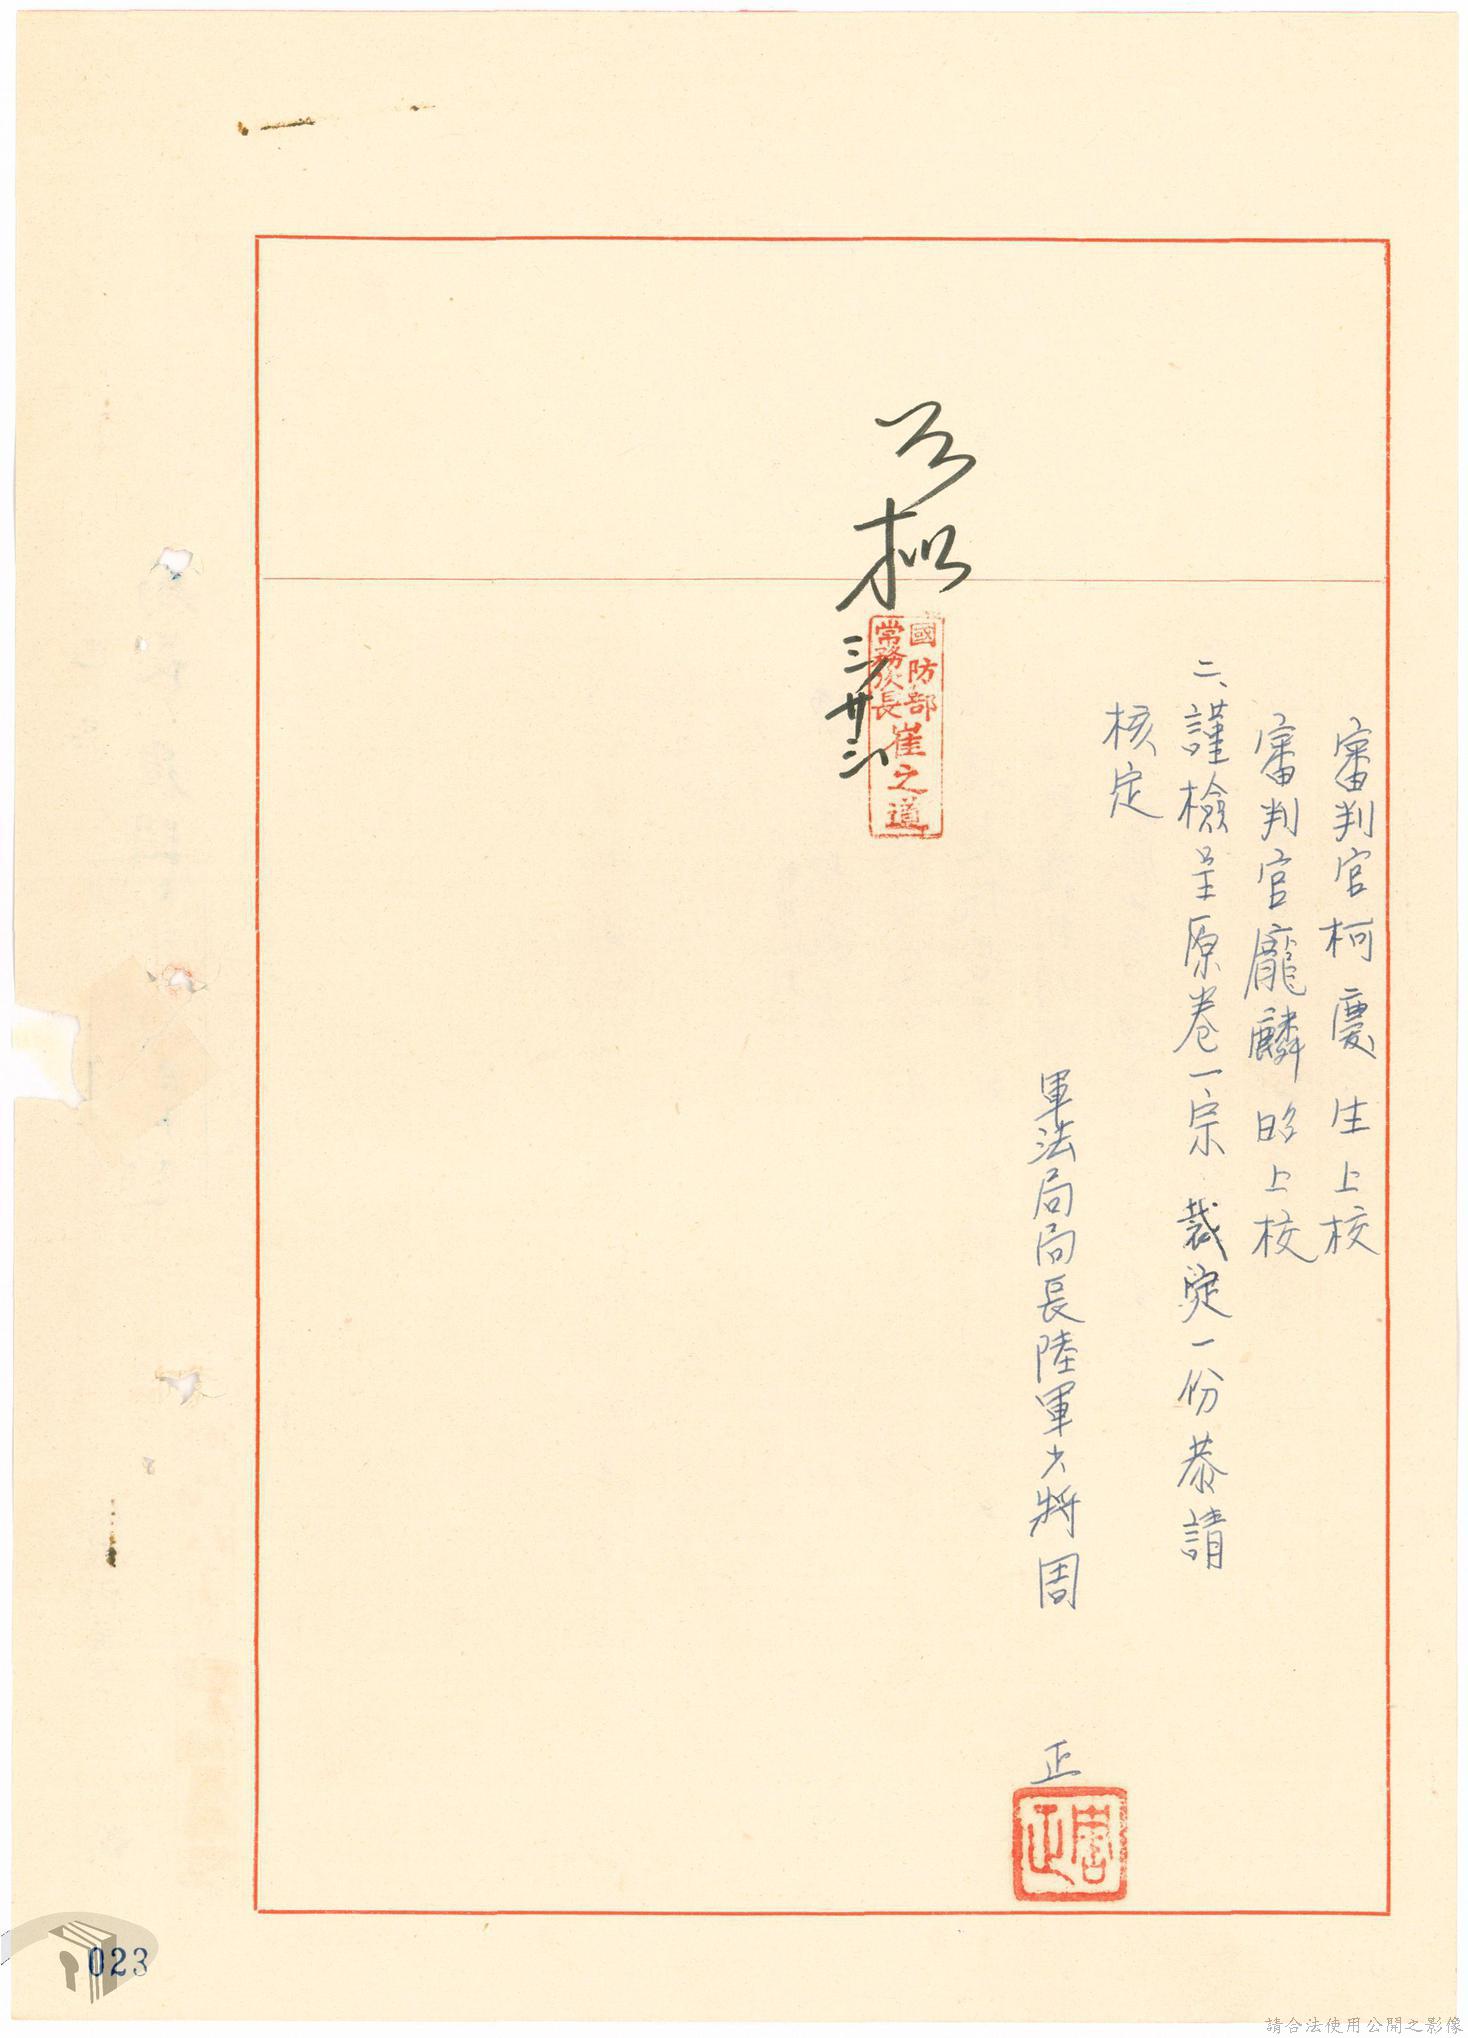 審判官柯慶生上校
審判官龐麟昭上校
二、謹檢呈原卷一宗裁定一份恭請
核定
軍法局局長陸軍少將周正
周正
如擬
國防部
常務次長崔之道
三廿三
023
請合法使用公開之影像